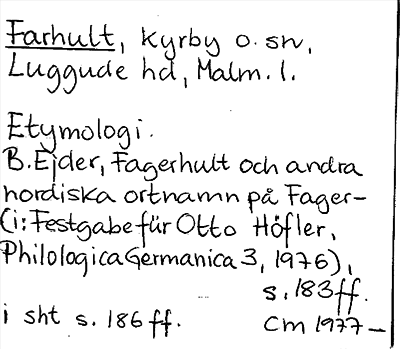 Farhult, Kyrby o. sn,
Luggude hd, Malm. l.
Etymologi.
B. Ejder, Fagerhult och andra
nordiska ortnamn på Fager-
(i: Festgabe für Otto Höfler,
Philologica Germanica 3, 1976),
s. 183 ff.
i sht s. 186 ff.
Cm 1977-